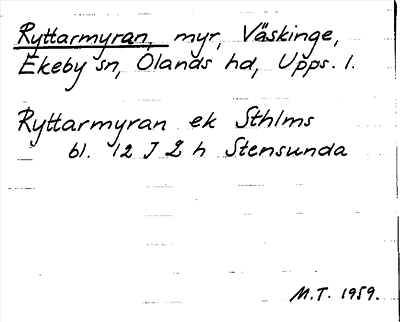 Ryttarmyran, myr, Väskinge,
Ekeby sn, Olands hd, Upps. l.
Ryttarmyran ek Sthlms
bl. 12 J 2 h Stensunda
M.T. 1959.